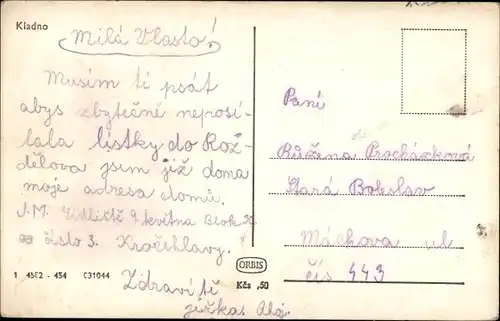 Kladno
Milá Vlasto!
Musím ti psát
abys zbytečně neposí-
lala lístky do Roz-
dělova jsem již doma
moje adresa domů.
J.M. Sídliště 9. května Blok
číslo 3. Kročehlavy.
Zdraví tě
jirka.
1 45E2 - 454 C31044
ORBIS
Kčs ,50
Paní
Růžena Procházková
Stará Boleslav
Máchova ul
čís 443